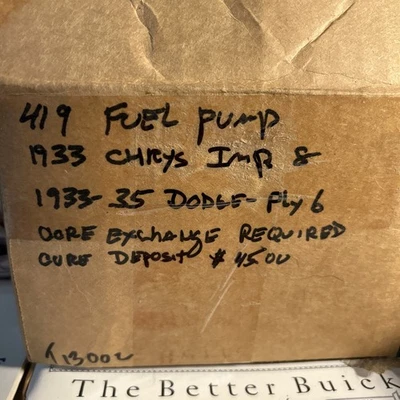 419 FUEL PUMP
1933 CHRYS IMP 8
1933-35 DODGE-PLY 6
CORE EXCHANGE REQUIRED
CORE DEPOSIT $4500
The Better Buick